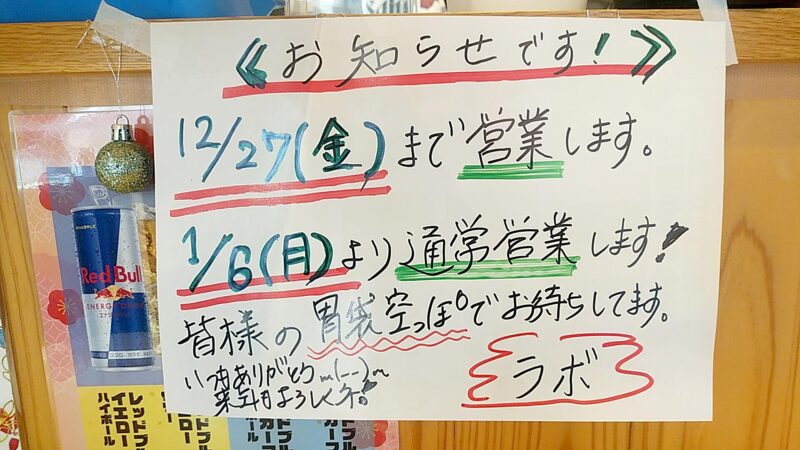 《お知らせです!》
12/27(金)まで営業します。
1/6(月)より通常営業します!
皆様の胃袋空っぽでお待ちしてます。
いつもありがとう m(--)m
来年もよろしくネ!
ラボ
Red Bull
ENERGY DRINK
レッドブル
イエロー
ハイボール